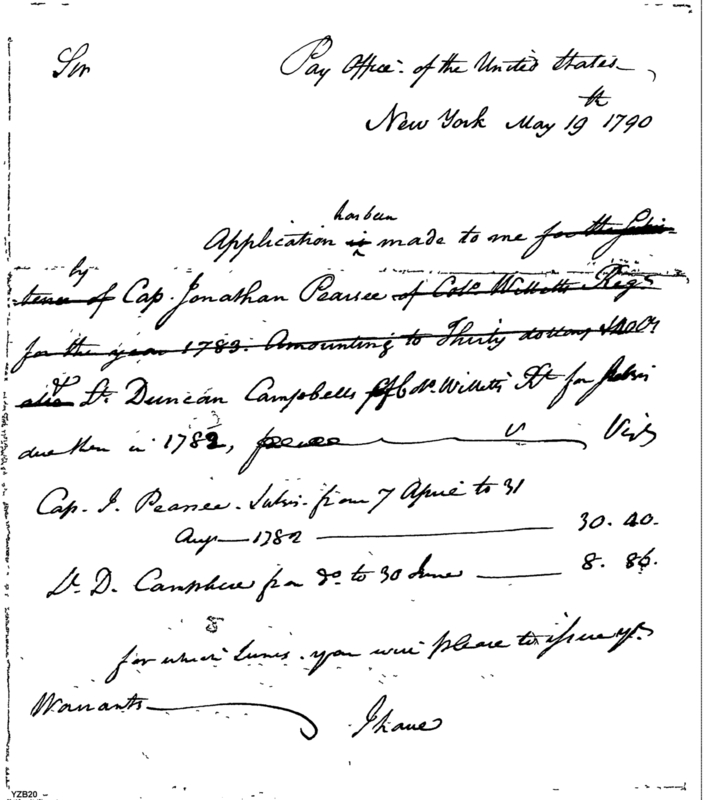 Sir Pay Office of the United States
New York May 19th 1790
has been
Application is made to me for the Subsis-
by
tence of Cap. Jonathan Pearsee of Colo. Willetts Regt
for the year 1783. Amounting to Thirty dollars
& Lt. Duncan Campbells of Colo. Willetts Rt for Subsis
due them in 1782, Vizt
Cap. J. Pearsee. Subsis. from 7 April to 31
Augt 1782 30. 40.
Lt. D. Campbell from do. to 30 June 8. 86.
for which Sums. you will please to issue yr.
Warrants
I have
YZB20